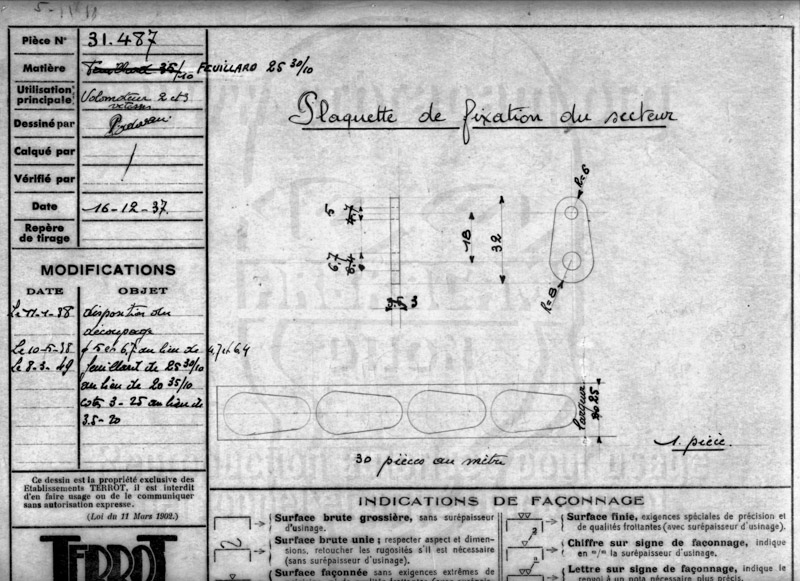 Pièce N° 31.487
Matière 35/10 FEUILLARD 25 30/10
Utilisation principale Vélomoteur 2 et 3 vitesses
Dessiné par
Calqué par
Vérifié par
Date 16-12-37.
Repère de tirage
MODIFICATIONS
DATE OBJET
Le 11-1-38 disposition du
découpage
Le 10-5-38 φ 5 et 6,7 au lieu de 4,7 et 6,4
Le 8-3-49 feuillard de 25 30/10
au lieu de 20 35/10
cotes 3-25 au lieu de
3.5-20
Ce dessin est la propriété exclusive des
Établissements TERROT, il est interdit
d'en faire usage ou de le communiquer
sans autorisation expresse.
(Loi du 11 Mars 1902.)
TERROT
Plaquette de fixation du secteur
5
4,7
6.7
6.4
3
18
32
R=6
R=8
largeur 20 25
30 pièces au mètre
1. pièce.
INDICATIONS DE FAÇONNAGE
Surface brute grossière, sans surépaisseur
d'usinage.
Surface brute unie ; respecter aspect et dimen-
sions, retoucher les rugosités s'il est nécessaire
(sans surépaisseur d'usinage).
Surface façonnée sans exigences extrêmes de
Surface finie, exigences spéciales de précision et
de qualités frottantes (avec surépaisseur d'usinage).
Chiffre sur signe de façonnage, indique
en m/m la surépaisseur d'usinage.
Lettre sur signe de façonnage, indique le
renvoi à un nota nécessaire plus précis.